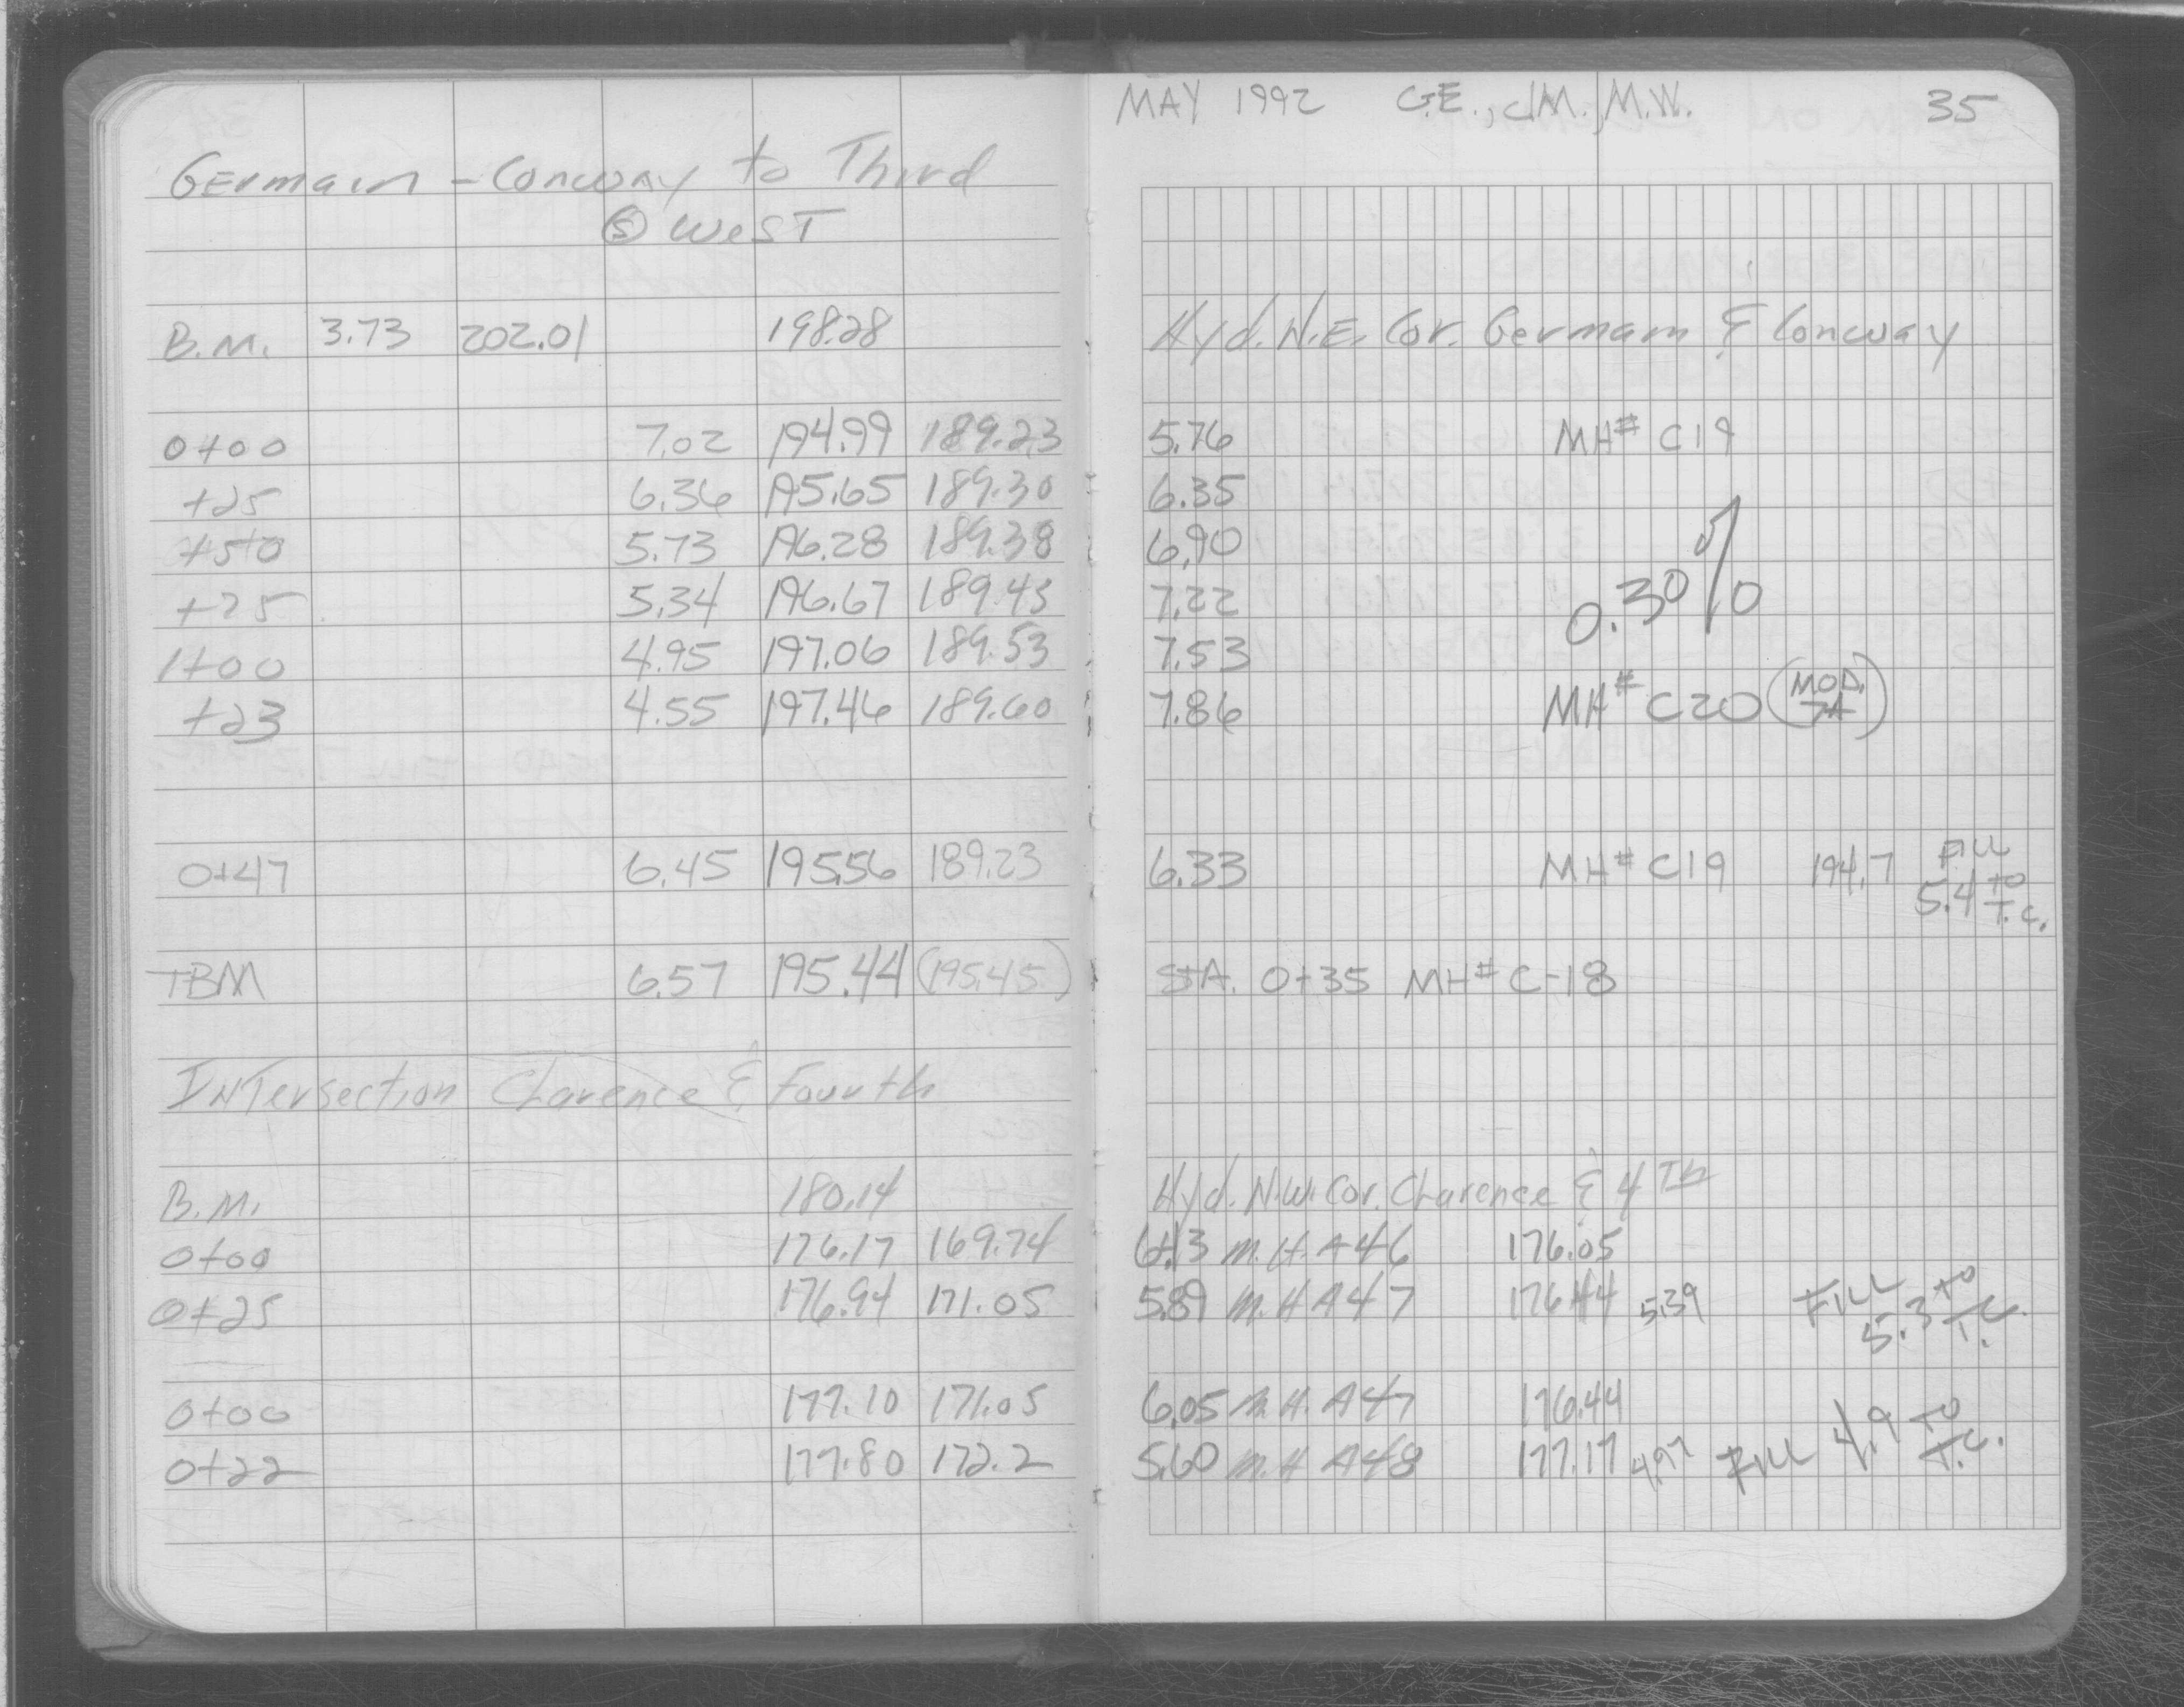 MAY 1992 G.E., J.M., M.W. 35
Germain - Conway to Third
Ⓢ West
B.M. 3.73 202.01 198.28 Hyd. N.E. Cor. Germain & Conway
0+00 7.02 194.99 189.23 5.76 MH# C19
+25 6.36 195.65 189.30 6.35
+50 5.73 196.28 189.38 6.90
+75 5.34 196.67 189.45 7.22 0.30%
1+00 4.95 197.06 189.53 7.53
+23 4.55 197.46 189.60 7.86 MH# C20 (MOD. 7A)
0+47 6.45 195.56 189.23 6.33 MH# C19 194.7 FILL
5.4 to T.C.
TBM 6.57 195.44 (195.45) STA. 0+35 MH# C-18
INTersection Clarence & Fourth
B.M. 180.14 Hyd. N.W. Cor. Clarence & 4Th
0+00 176.17 169.74 M.H. A46 176.05
0+25 176.94 171.05 5.89 M.H A47 176.44 5.39 FILL 5.3 to T.C.
0+00 177.10 171.05 6.05 M.H. A47 176.44
0+22 177.80 172.2 5.60 M.H A48 177.17 4.97 FILL 4.9 TO T.C.